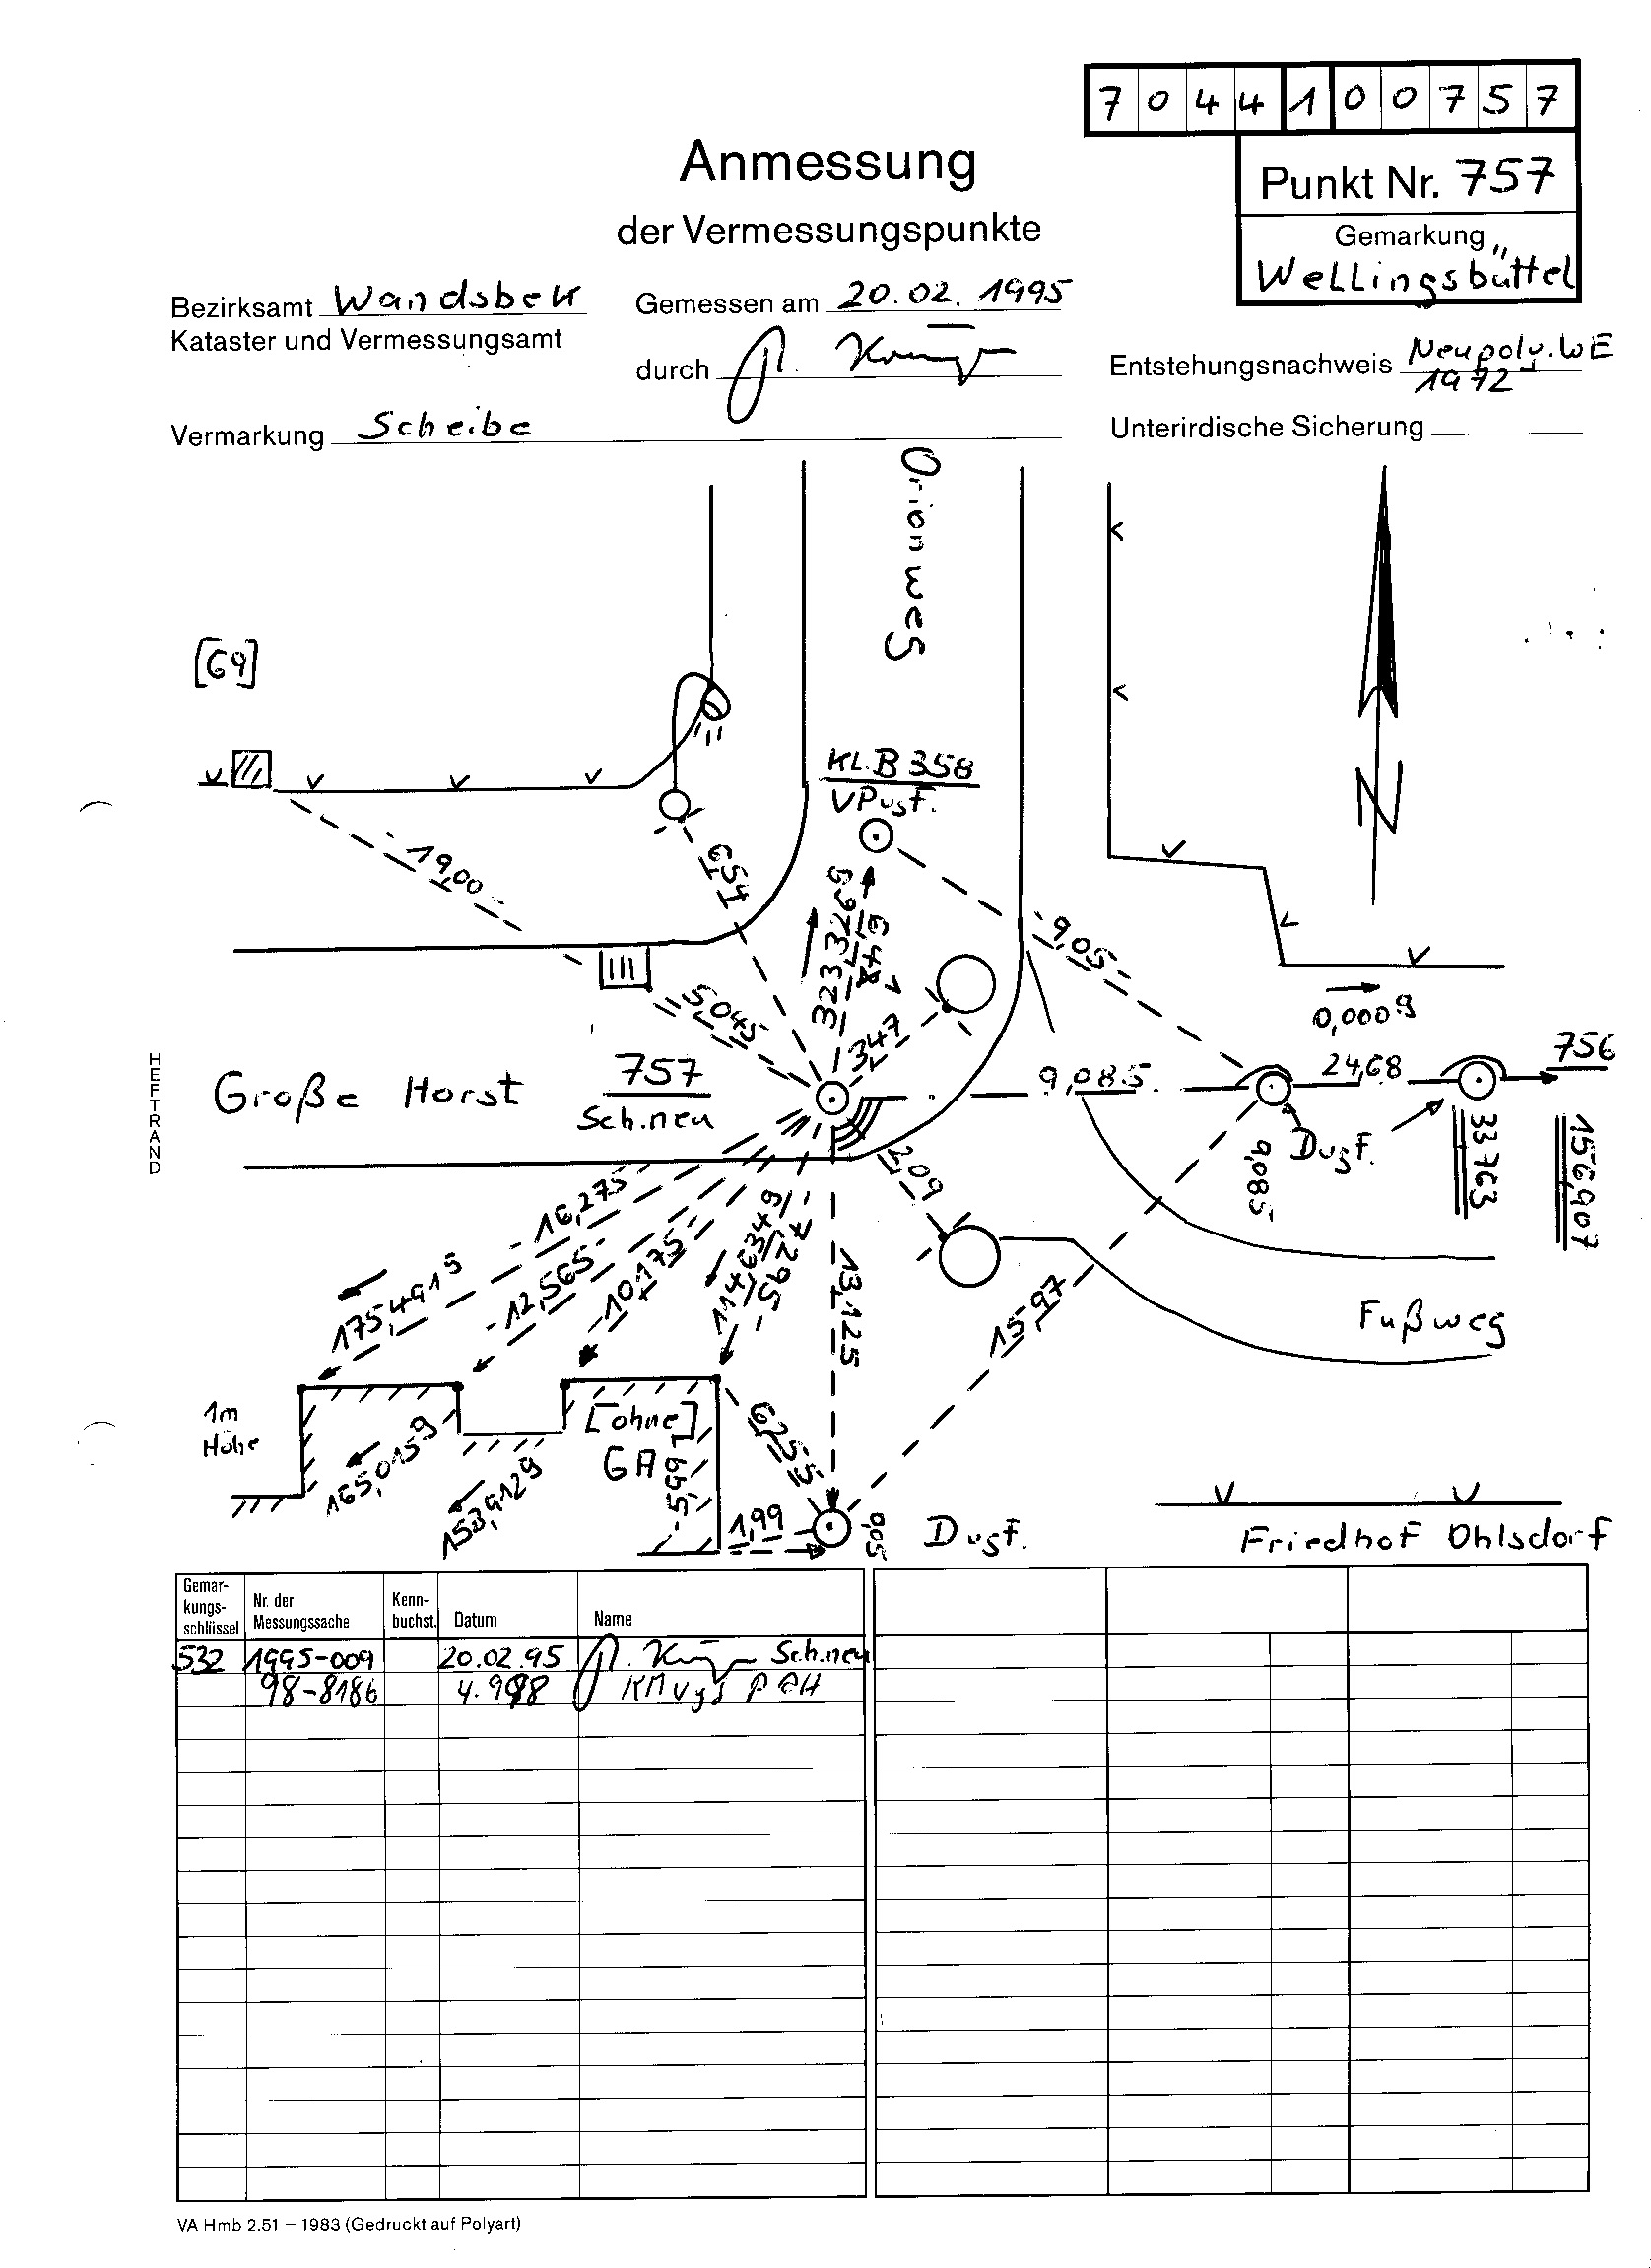 7044100757
Anmessung
der Vermessungspunkte
Punkt Nr. 757
Gemarkung
Wellingsbüttel
Bezirksamt Wandsbek
Kataster und Vermessungsamt
Gemessen am 20.02.1995
durch
Entstehungsnachweis Neupoly. WE
1972
Vermarkung Scheibe
Unterirdische Sicherung
Orionweg
[69]
KL.B 358
VPugf.
19,00
6,54
323,326g
6,648
9,05
N
0,000g
5,045
3,47
757
Sch.neu
Große Horst
HEFTRAND
9,085
24,68
756
Dugf.
9,085
33763
156,907
2,09
16,275
175,491g
12,565
10,175
114,634g
7,295
13,125
15,97
Fußweg
1m
Höhe
165,015g
153,912g
[ohne]
GA
5,997
6,255
1,99
9,05
Dugf.
Friedhof Ohlsdorf
Gemar-
kungs-
schlüssel
Nr. der
Messungssache
Kenn-
buchst.
Datum
Name
532 1995-009 20.02.95 Sch.neu
98-8186 4.9.98
VA Hmb 2.51 – 1983 (Gedruckt auf Polyart)